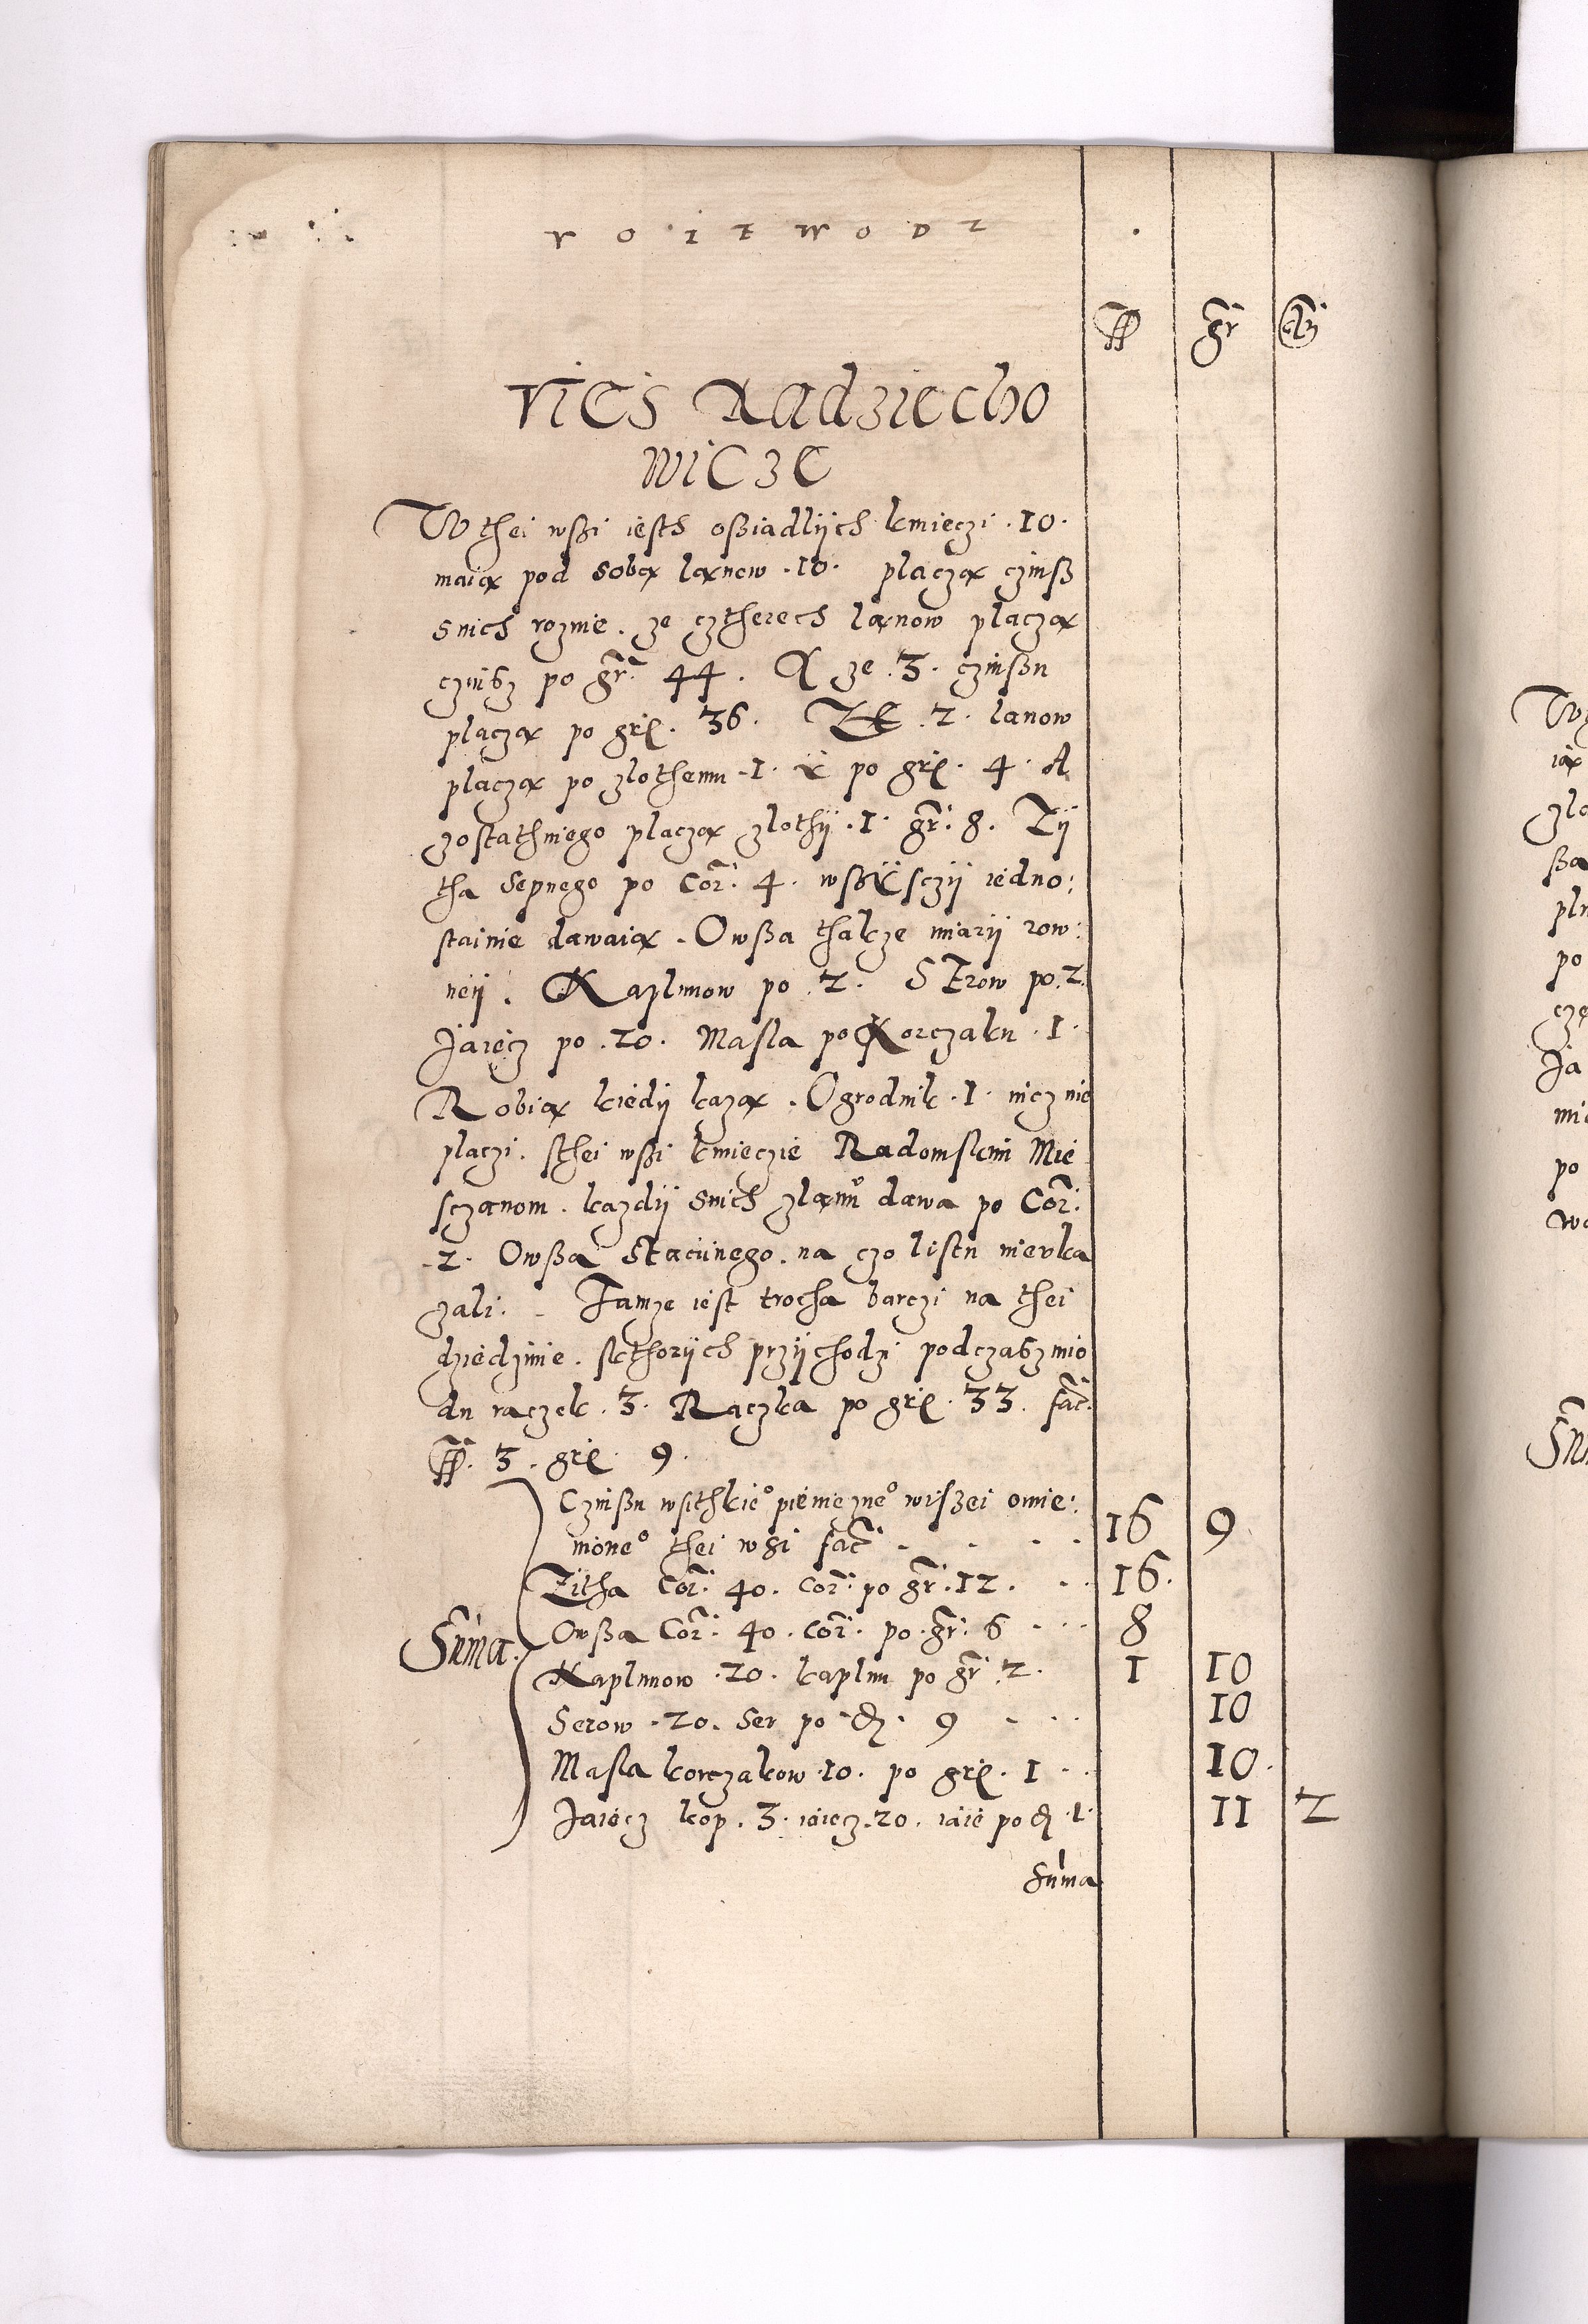 V O I E W O D Z
fl gr dn
VIES Radziecho
wicze
W thei wßi iesth oßiadlijch kmieczi .10.
maią pod sobą lanow .10. placzą czinß
snich roznie . ze cztherech lanow placzą
czinsz po gr. 44. A ze .3. czinßu
placzą po grl. 36. ZE .2. lanow
placzą po zlothemu .1. i po grl. 4. A
zostathniego placzą zlothij .1. gr. 8. Zij
tha sepnego po Cor. 4. wßijsczij iedno:
stainie dawaią . Owßa thakze miarij row:
neij . Kaplunow po .2. SErow po .2.
Jaiecz po .20. Masla po Korczaku .1.
Robią kiedij każą . Ogrodnik .1. nicz nie
placzi . sthei wßi kmieczie Radomskim Mie
sczanom . kazdij snich zlanu dawa po Cor.
.2. Owßa Staciinego . na czo listu nieuka
zali . Tamze iest trocha barczi na thei
dziedzinie . skthorijch przijchodzi podczasz mio
du raczek .3. Raczka po grl. 33. fac.
fl. 3. grl 9.
Czinßu wsithkieo pieniezneo wißei omie:
nioneo thei wsi fac . . . . 16 9
Zitha Cor. 40. cor. po gr. 12. . . 16.
Suma. Owßa Cor. 40. cor. po gr. 6 . . . 8
Kaplunow .20. kaplun po gr. 2. 1 10
Serow .20. Ser po d. 9 . . . 10
Masla korczakow .10. po grl. 1 . . 10.
Jaiecz kop. 3. iaiecz .20. iaie po d .1. 11 2
Suma